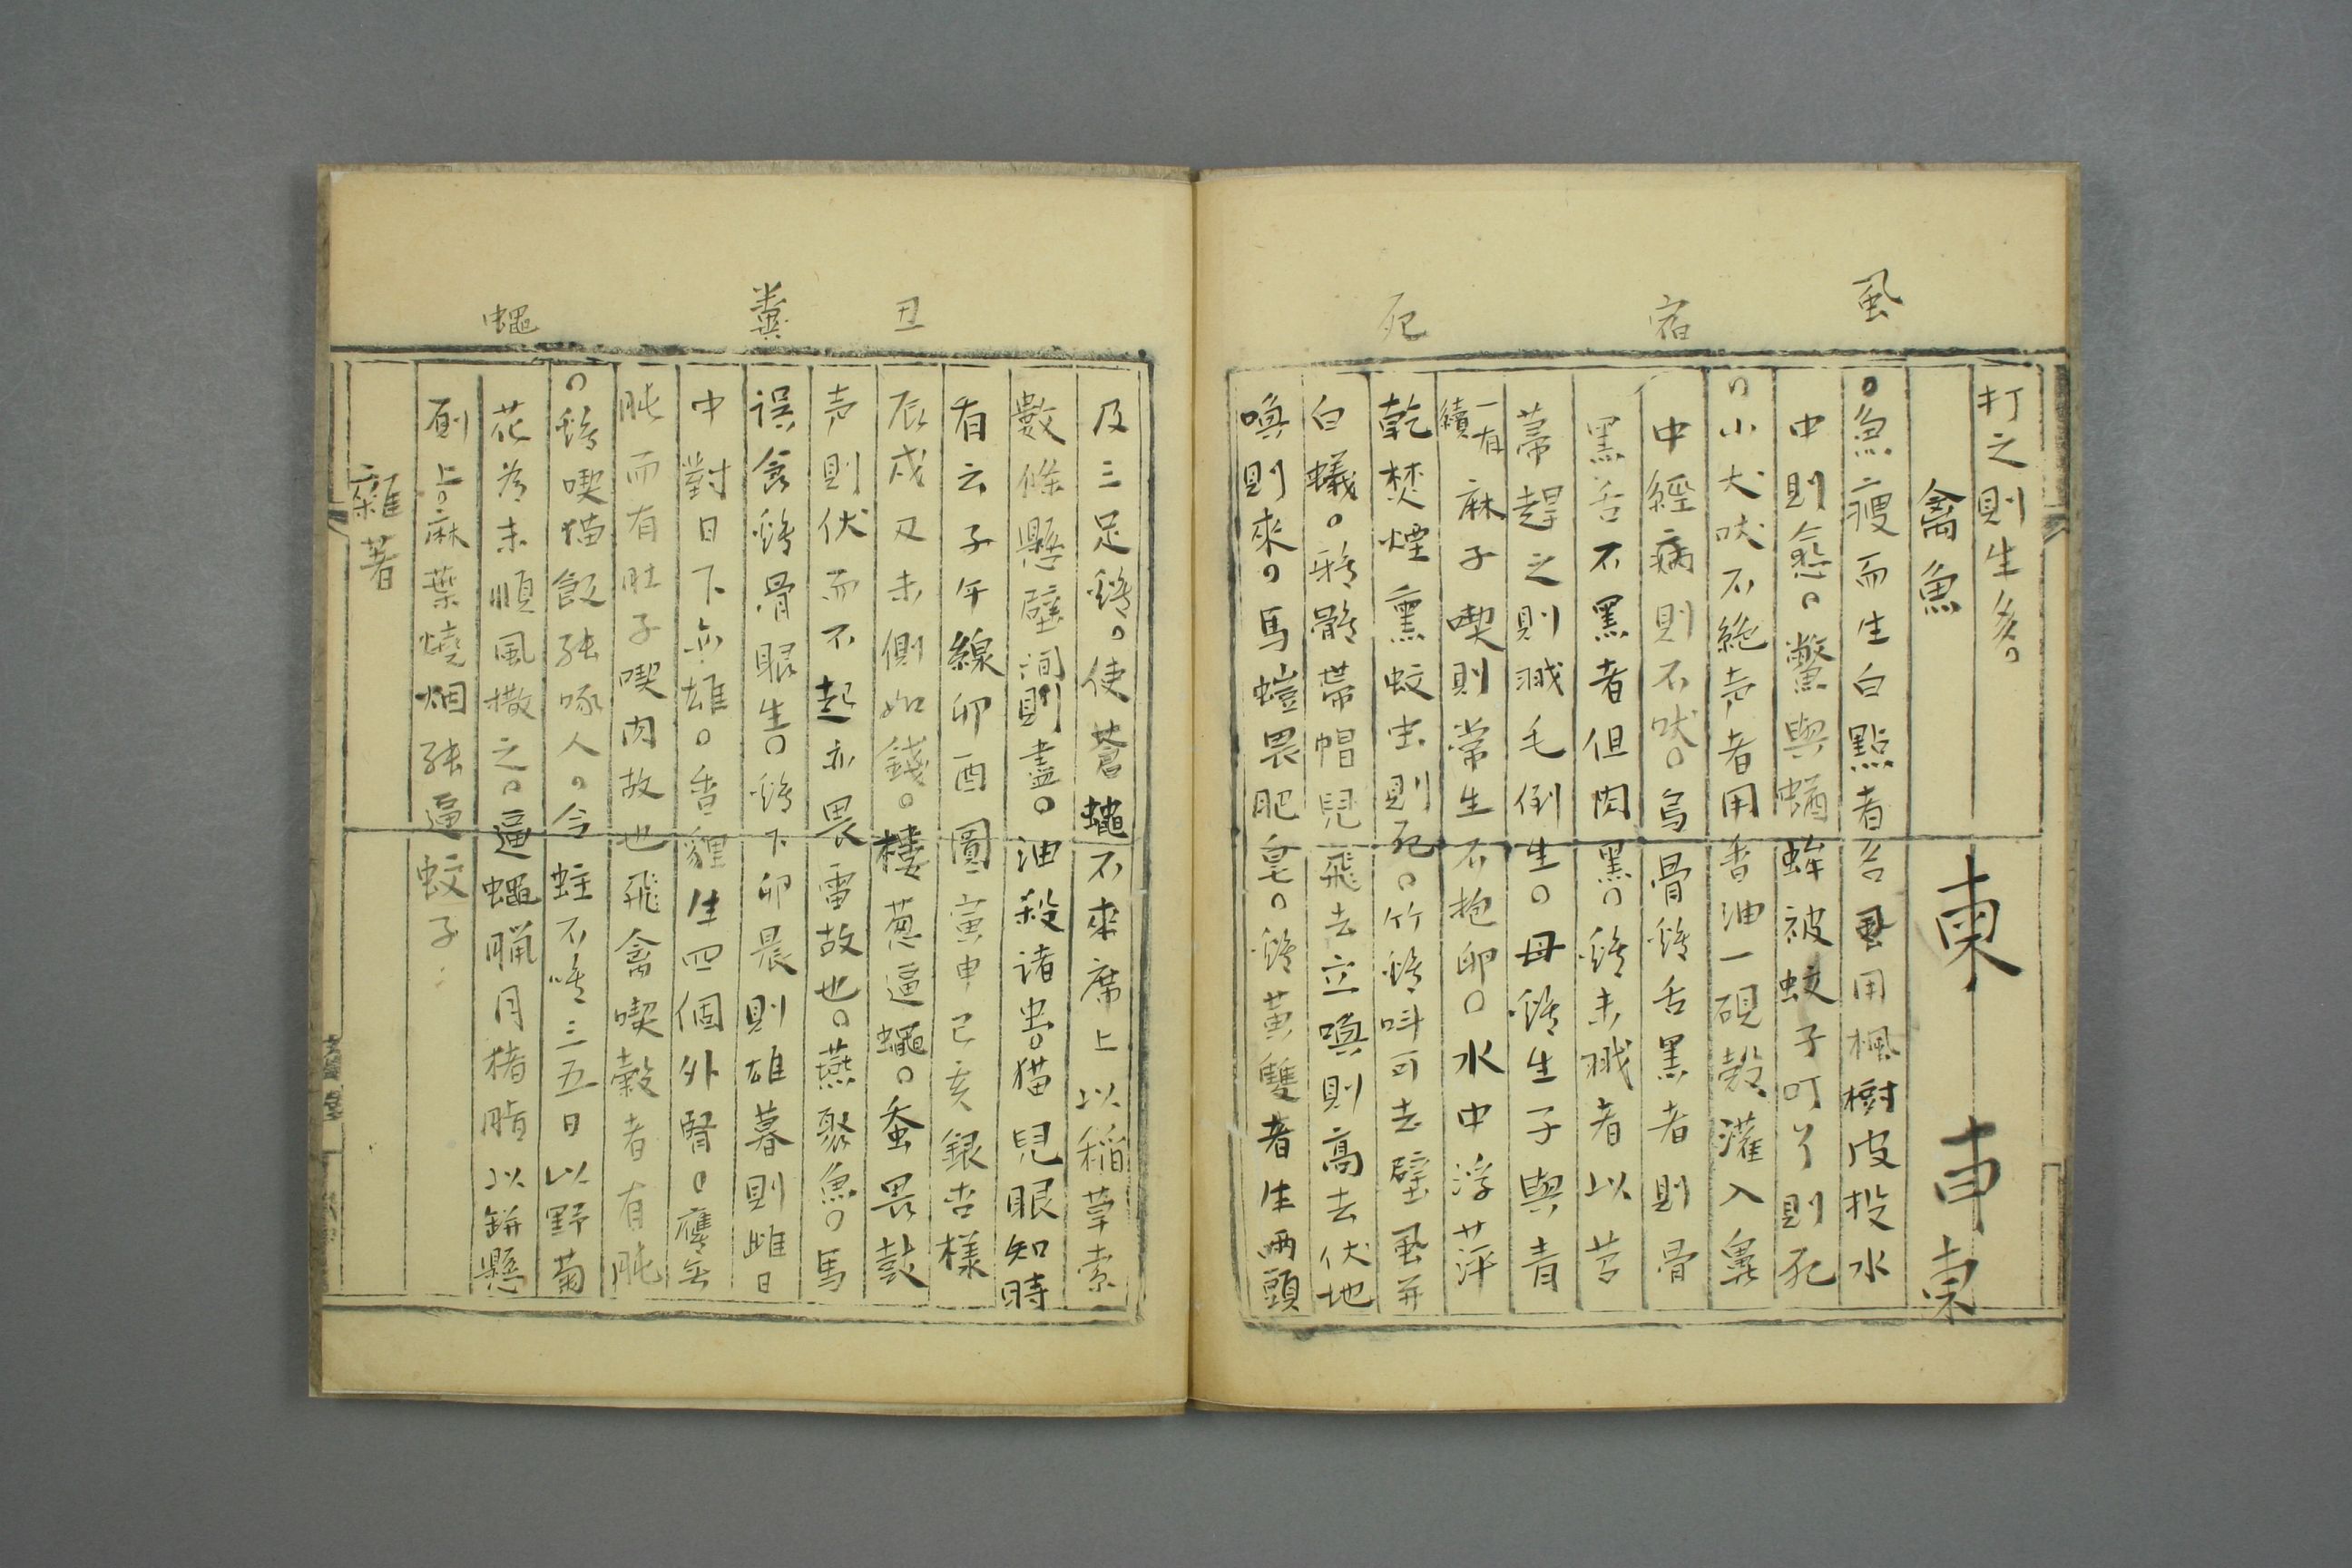 風
宿
死
打之則生多。
禽魚
東
東
東
。魚瘦而生白點者名虱用楓樹皮投水
中則愈。鱉與蝤蛑被蚊子叮了則死
。小犬吠不絶声者用香油一蜆殼灌入鼻
中經病則不吠。烏骨鷄舌黑者則骨
黑舌不黑者但肉黑。鷄未㲯者以苕
帚趕之則㲯毛倒生。母鷄生子與青
一有續麻子喫則常生不抱卵。水中浮萍
乾焚煙熏蚊虫則死。竹鷄叫可去壁虱并
白蟻。鴉鶻帶帽兒飛去立喚則高去伏地
喚則來。馬螘畏肥皂。鷄黃雙者生兩頭
丑
糞
蠅
及三足鷄。使蒼蠅不來席上以稻草索
數條懸壁間則盡。油殺諸虫。猫兒眼知時
有云子午線卯酉圓寅申巳亥銀杏様
辰戌丑未側如錢。韮葱逼蠅。蚕畏鼓
声則伏而不起亦畏雷故也。燕聚魚。馬
誤食鷄骨眼生。鷄下卵晨則雄暮則雌日
中對日下亦雄。香狸生四個外腎。鷹無
肫而有肚子喫肉故也飛禽喫穀者有肫
。鷄喫猫飯能啄人。令蛙不鳴三五日以野菊
花為末順風撒之。逼蠅臘月猪脂以缾懸
厠上。麻葉燒烟能逼蚊子
雜著